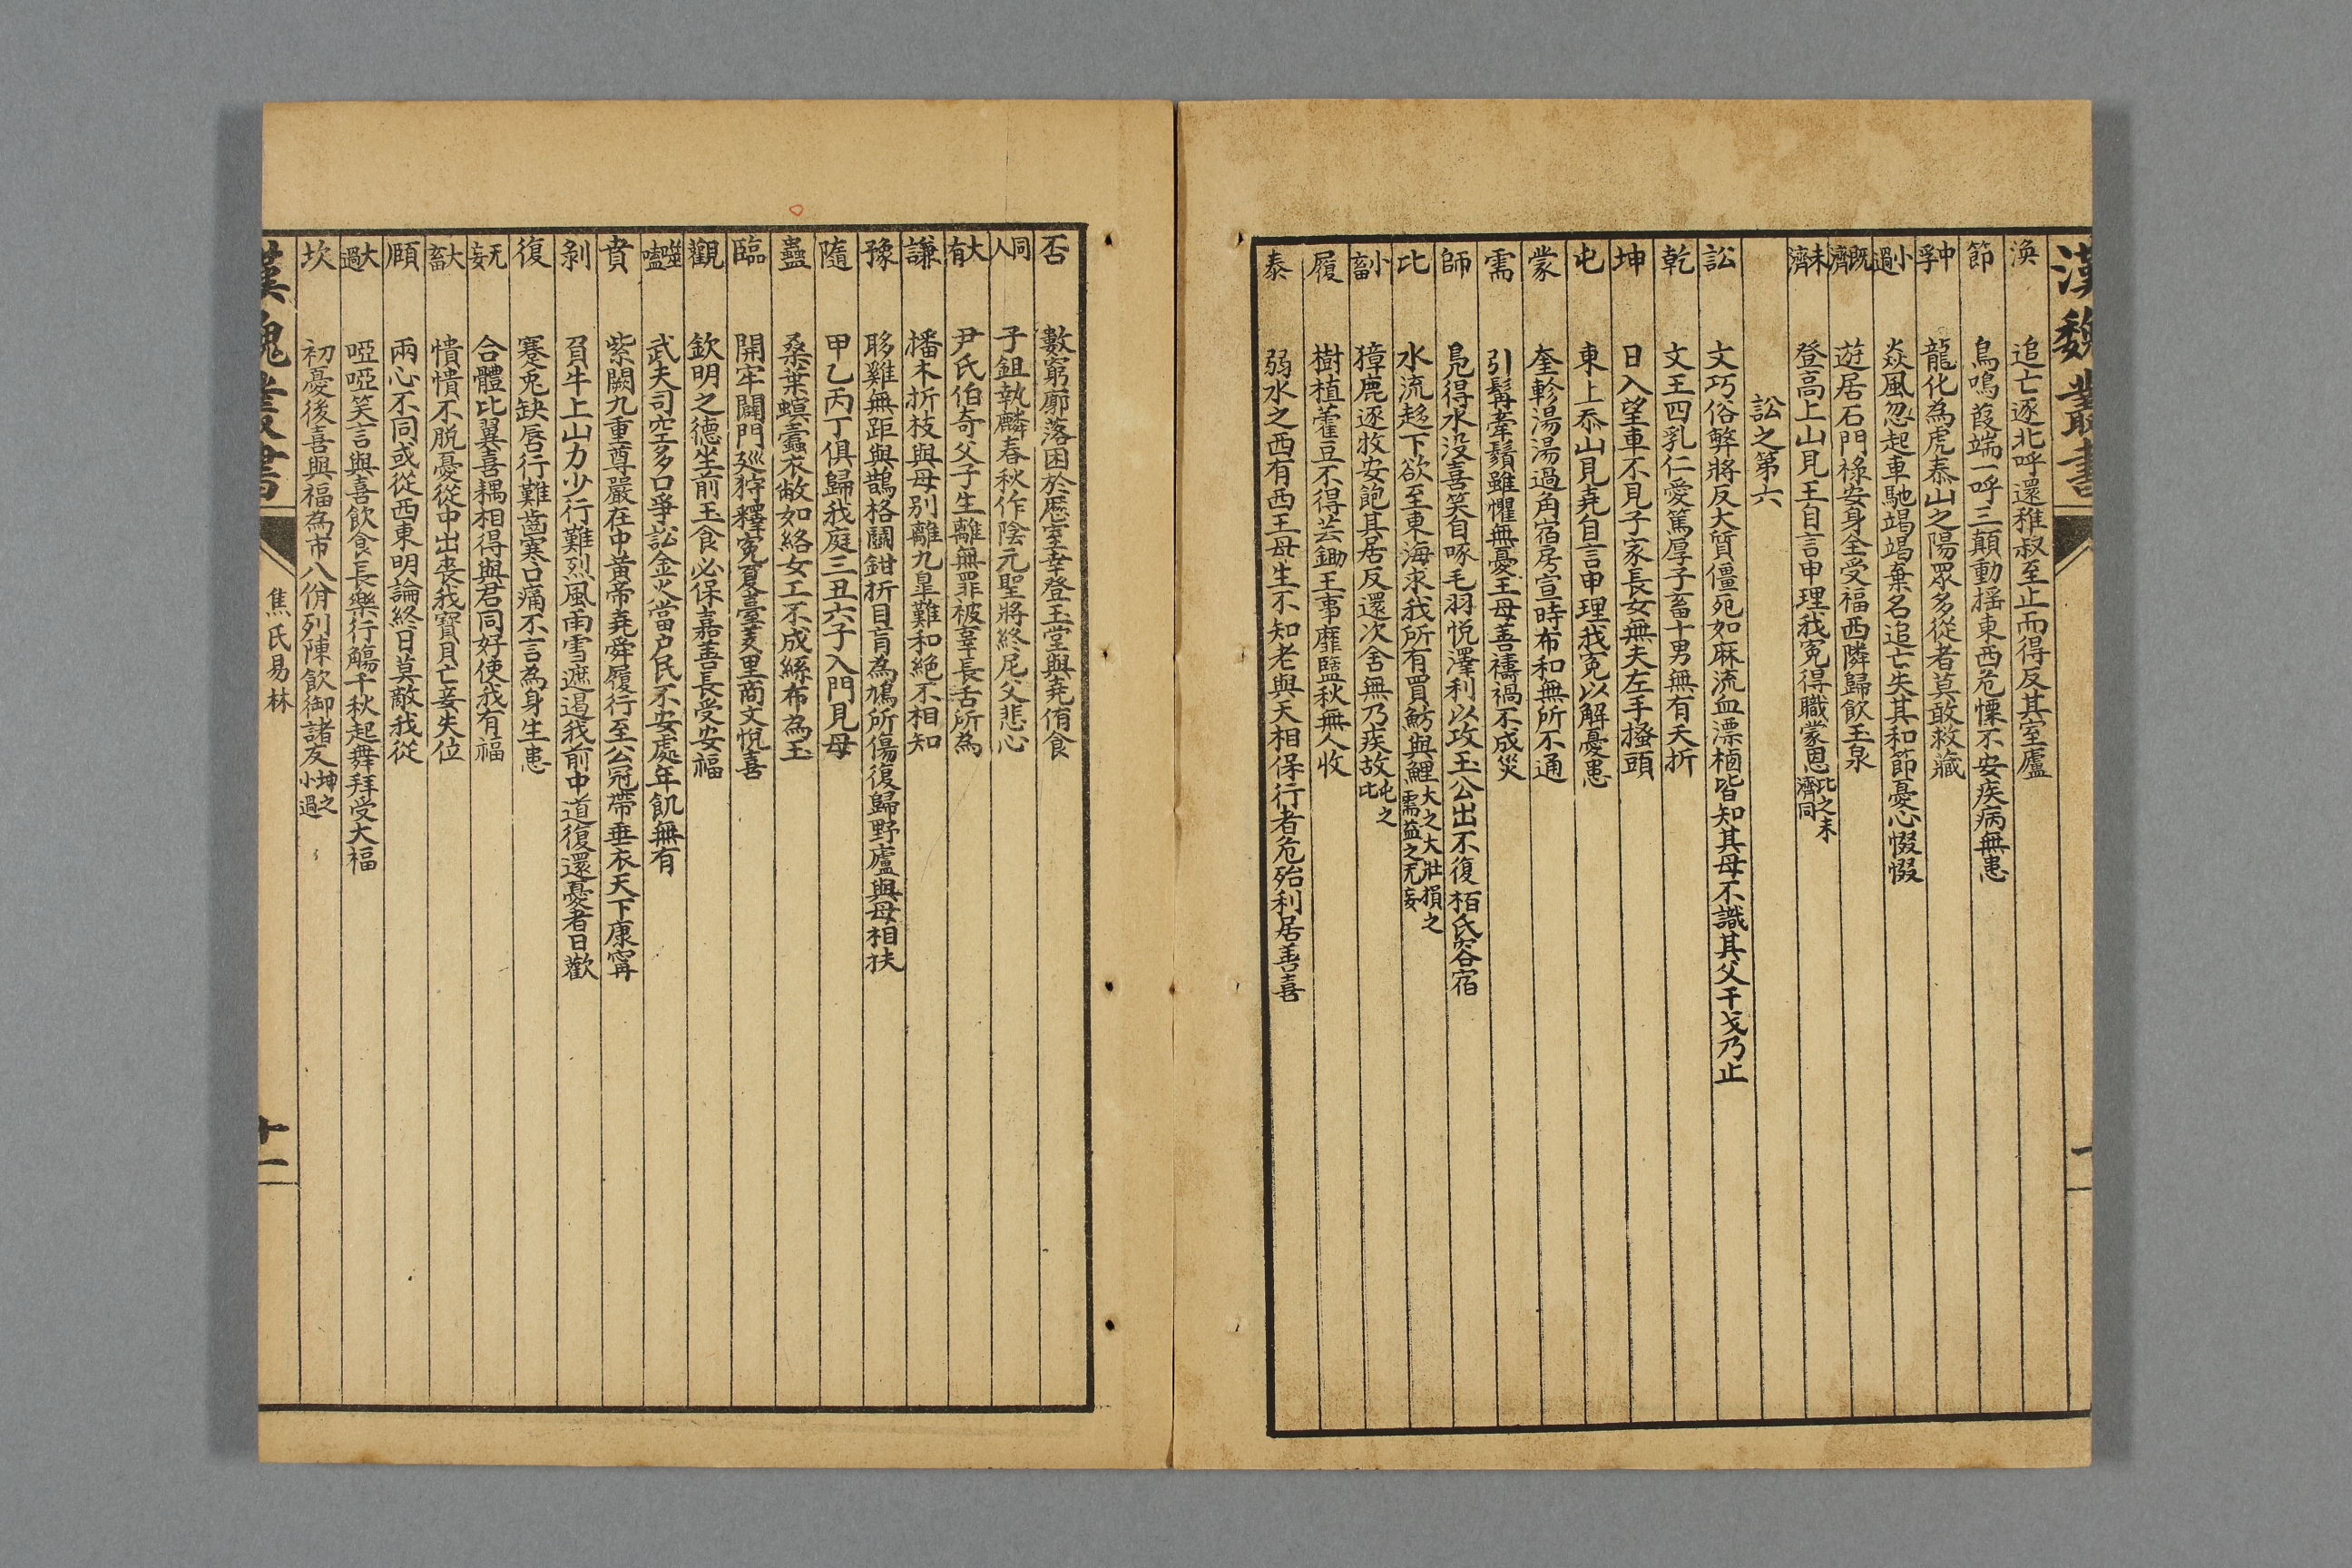 漢魏叢書
渙 追亡逐北呼還稚叔至止而得反其室廬
節 鳥鳴葭端一呼三顛動揺東西危慄不安疾病無患
中孚 龍化為虎泰山之陽眾多從者莫敢救藏
小過 焱風忽起車馳竭竭棄名追亡失其和節憂心惙惙
既濟 遊居石門祿安身全受福西隣歸飲玉泉
未濟 登高上山見王自言申理我冤得職蒙恩比之未濟同
訟之第六
訟 文巧俗弊將反大質僵死如麻流血漂櫓皆知其母不識其父干戈乃止
乾 文王四乳仁愛篤厚子畜十男無有夭折
坤 日入望車不見子家長女無夫左手搔頭
屯 東上泰山見堯自言申理我冤以解憂患
蒙 奎軫湯湯過角宿房宣時布和無所不通
需 引髯牽鬚雖懼無憂王母善禱禍不成災
師 鳧得水没喜笑自啄毛羽悅澤利以攻玉公出不復栢氏容宿
比 水流趍下欲至東海求我所有買魴與鯉大之大壯損之需益之无妄
小畜 獐鹿逐牧安飽其居反還次舍無乃疾故屯之比
履 樹植藿豆不得芸鋤王事靡盬秋無人收
泰 弱水之西有西王母生不知老與天相保行者危殆利居善喜
否 數窮廓落困於厯室幸登玉堂與堯侑食
同人 子鉏執麟春秋作陰元聖將終尼父悲心
大有 尹氏伯奇父子生離無罪被辜長舌所為
謙 橎木折枝與母别離九臯難和絶不相知
豫 眵雞無距與鵲格鬬鉗折目盲為鳩所傷復歸野廬與母相扶
隨 甲乙丙丁俱歸我庭三丑六子入門見母
蠱 桑葉螟蠹衣敝如絡女工不成絲布為玉
臨 開牢闢門廵狩釋冤夏臺羑里商文悅喜
觀 欽明之德坐前玉食必保嘉善長受安福
噬嗑 武夫司空多口爭訟金火當户民不安處年飢無有
賁 紫闕九重尊嚴在中黄帝堯舜履行至公冠帶垂衣天下康寧
剝 負牛上山力少行難烈風雨雪遮遏我前中道復還憂者日歡
復 蹇兎缺脣行難齒寒口痛不言為身生患
无妄 合體比翼喜耦相得與君同好使我有福
大畜 憒憒不脱憂從中出喪我寶貝亡妾失位
頤 兩心不同或從西東明論終日莫敵我從
大過 啞啞笑言與喜飲食長樂行觴千秋起舞拜受大福
坎 初憂後喜與福為市八佾列陳飲御諸友坤之小過
漢魏叢書 焦氏易林 十一